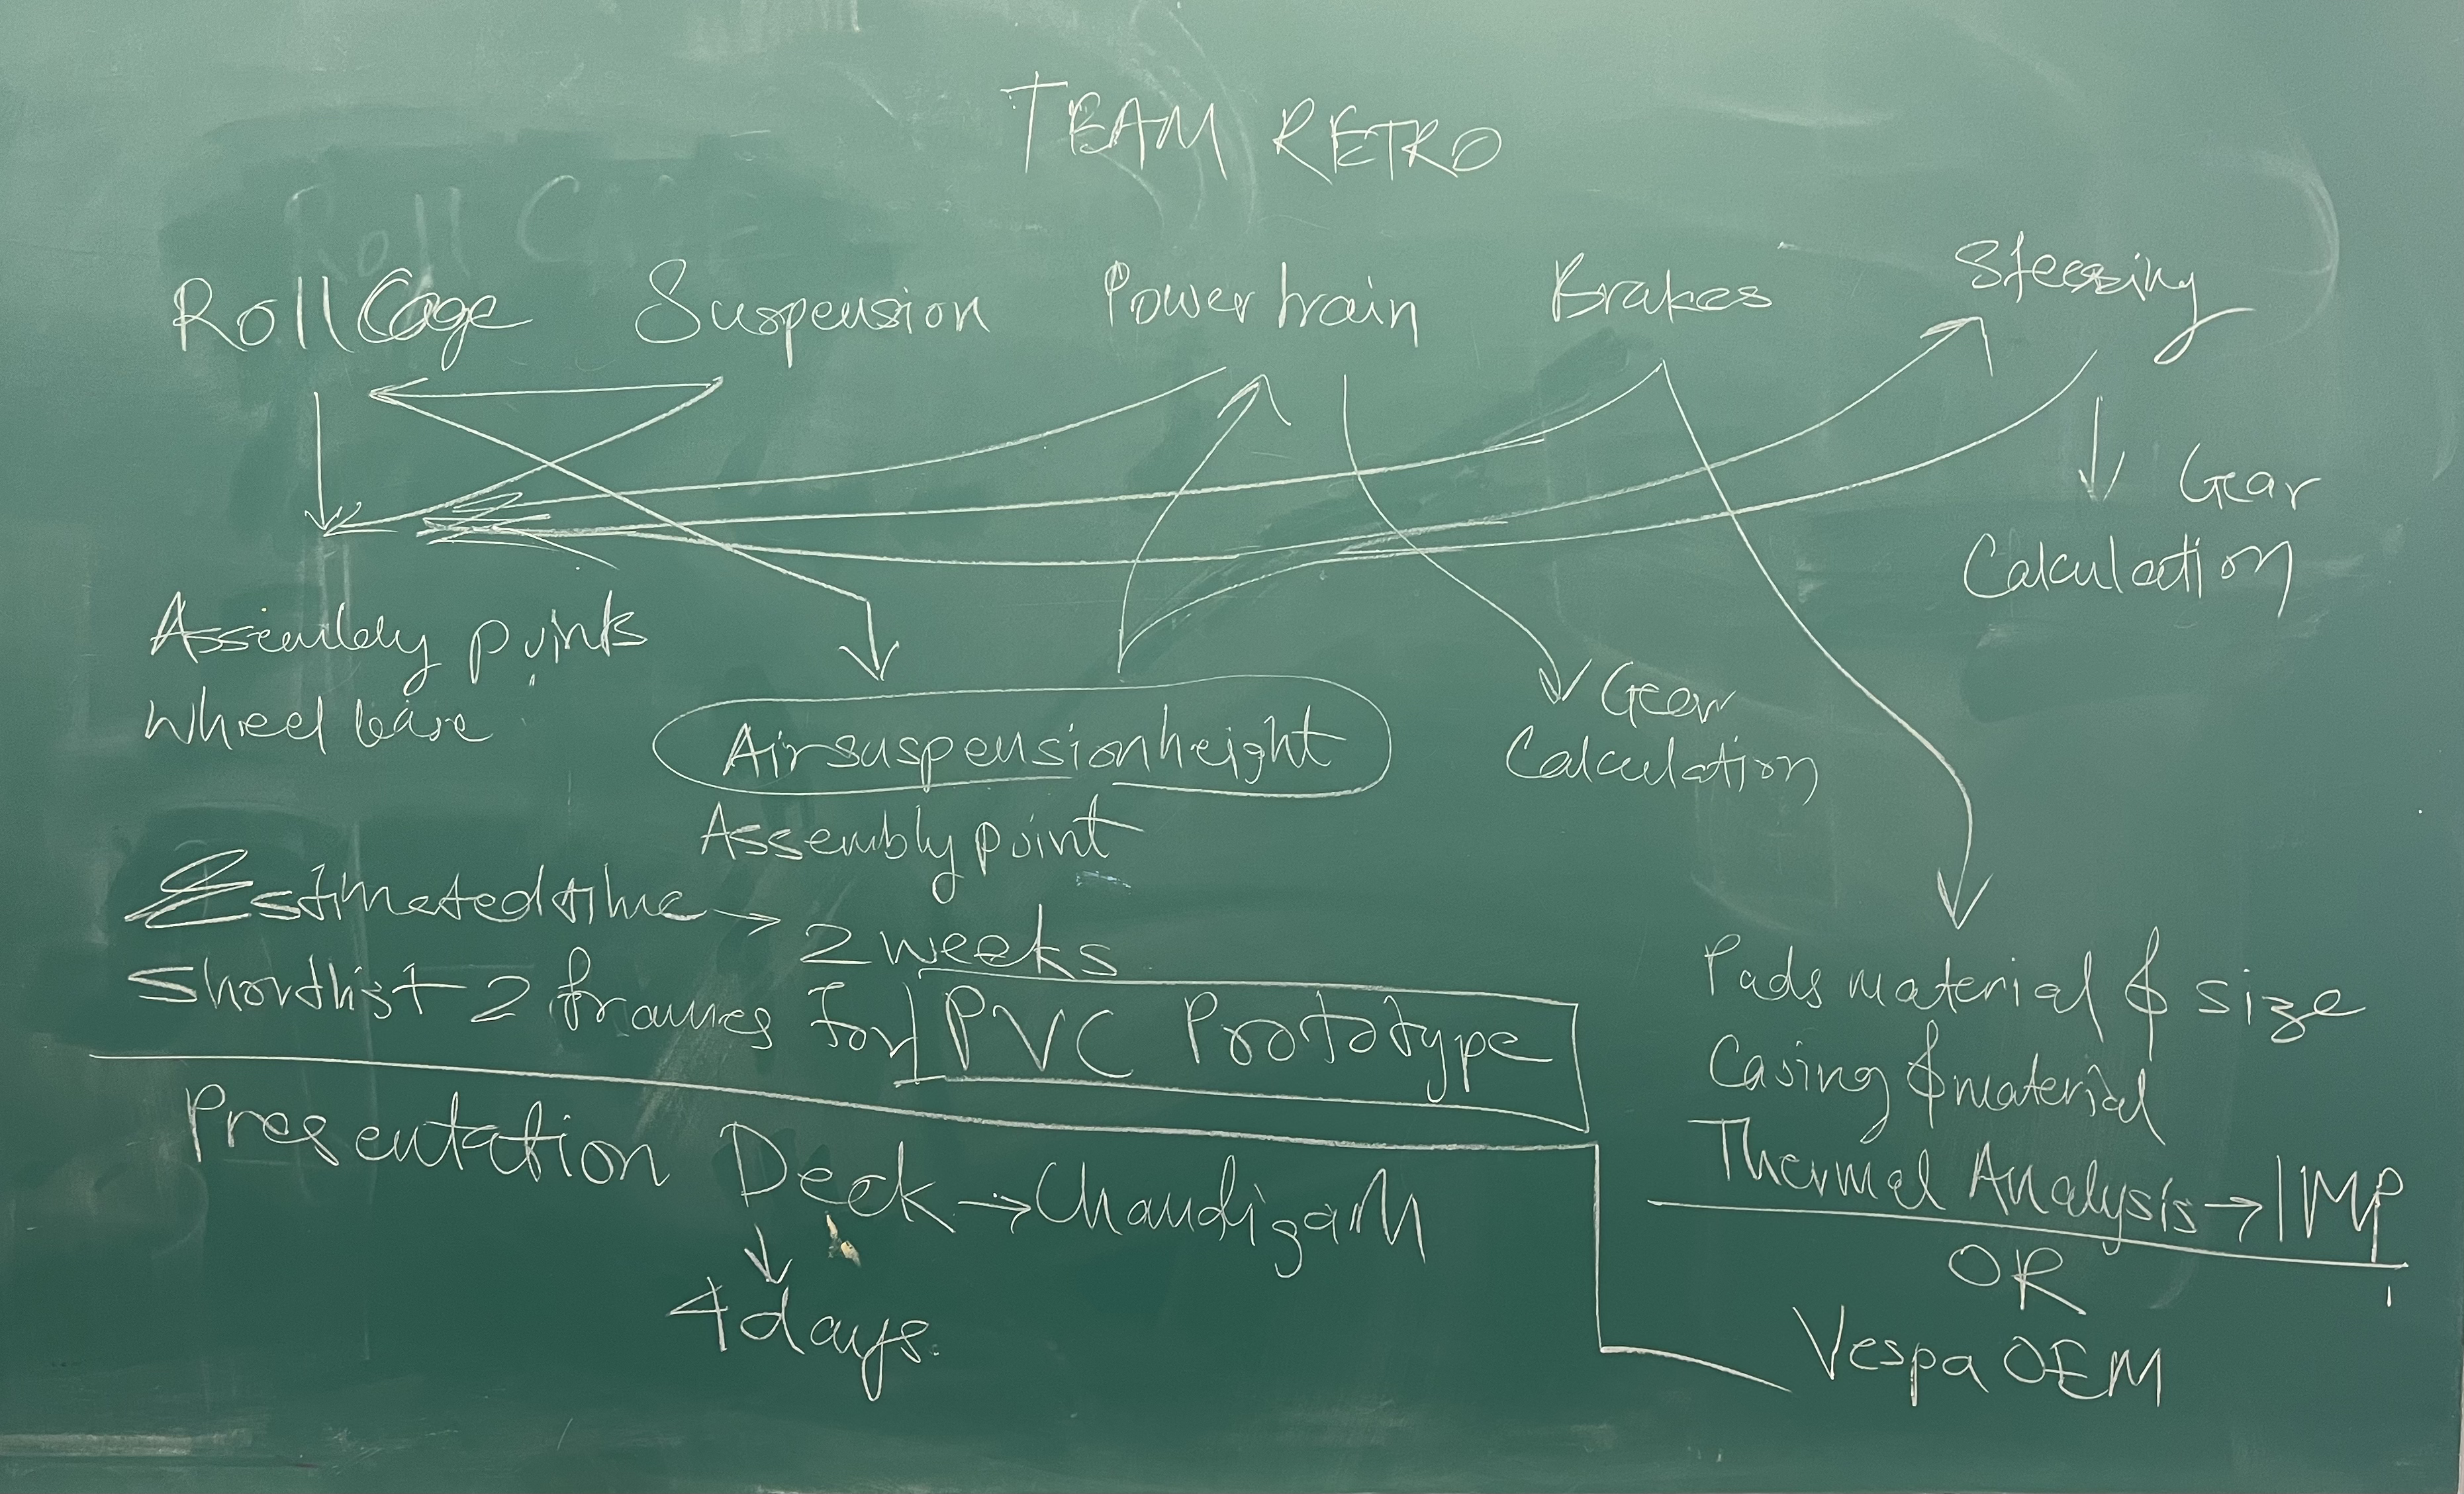 TEAM RETRO
Roll Cage
Roll Cage Suspension Powertrain Brakes Steering
Gear
Calculation
Assembly points
Wheel base
Gear
Calculation
Airsuspensionheight
Assembly point
Estimated time → 2 weeks
Shortlist 2 frames for PVC Prototype
Pads material & size
Casing & material
Thermal Analysis → IMP
OR
Vespa OEM
Presentation Deck → Chandigarh
4 days.